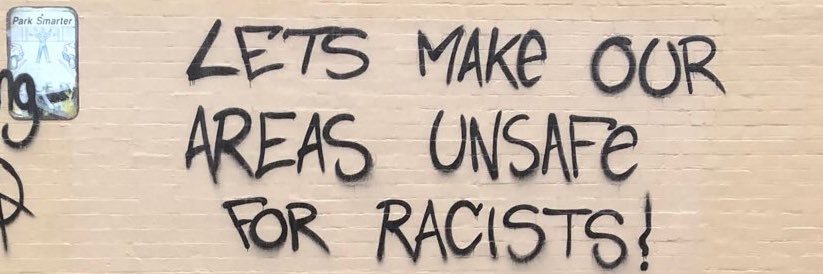 Park Smarter
ng
LETS MAKe OUR
AREAS UNSAFe
FOR RACISTS!